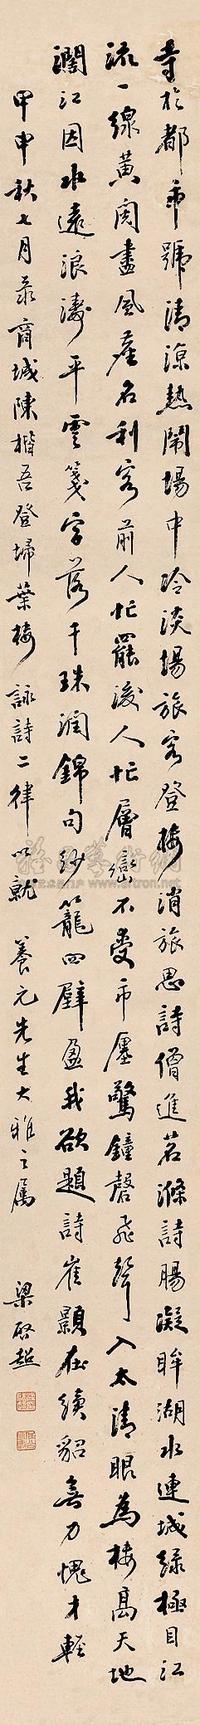 寺於都市號清涼熱鬧場中冷淡場旅客登樓消旅思詩僧進茗滌詩腸凝眸湖水連城綠極目江
流一線黃閱盡風塵名利客前人忙罷後人忙層巒不受市廛驚鐘磬飛聲入太清眼為樓高天地
濶江因水遠浪濤平雲箋字落千珠潤錦句紗籠四壁盈我欲題詩崔顥在續貂無力愧才輕
甲申秋七月录商城陳楷吾登埽葉樓詠詩二律以就
養元先生大雅之屬
梁啟超